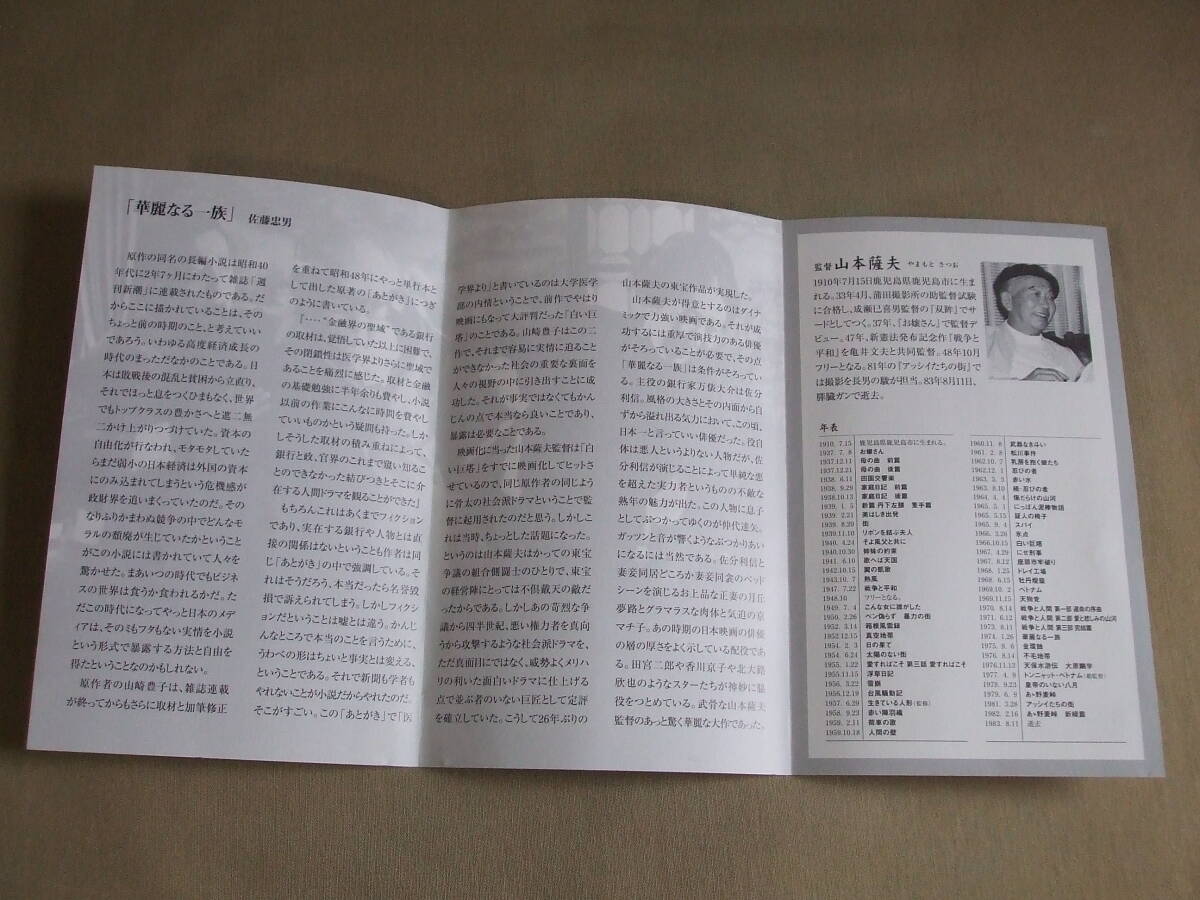 「華麗なる一族」 佐藤忠男
原作の同名の長編小説は昭和40
年代に2年7ヶ月にわたって雑誌「週
刊新潮」に連載されたものである。だ
からここに描かれていることは、その
ちょっと前の時期のこと、と考えていい
であろう。いわゆる高度経済成長の
時代のまっただなかのことである。日
本は敗戦後の混乱と貧困から立直り、
それでほっと息をつくひまもなく、世界
でもトップクラスの豊かさへと遮二無
二かけ上がりつづけていた。資本の
自由化が行なわれ、モタモタしていた
らまだ弱小の日本経済は外国の資本
にのみ込まれてしまうという危機感が
政財界を追いまくっていたのだ。その
なりふりかまわぬ競争の中でどんなモ
ラルの頽廃が生じていたかということ
がこの小説には書かれていて人々を
驚かせた。まあいつの時代でもビジネ
スの世界は食うか食われるかだ。た
だこの時代になってやっと日本のメデ
ィアは、そのミもフタもない実情を小説
という形式で暴露する方法と自由を
得たということなのかもしれない。
原作者の山崎豊子は、雑誌連載
が終ってからもさらに取材と加筆修正
を重ねて昭和48年にやっと単行本と
して出した原著の「あとがき」につぎ
のように書いている。
『‥‥“金融界の聖域”である銀行
の取材は、覚悟していた以上に困難で、
その閉鎖性は医学界よりさらに聖域で
あることを痛烈に感じた。取材と金融
の基礎勉強に半年余りも費やし、小説
以前の作業にこんなに時間を費やし
ていいものかという疑問も持った。しか
しそうした取材の積み重ねによって、
銀行と政、官界のこれまで窺い知るこ
とのできなかった結びつきとそこに介
在する人間ドラマを観ることができた』
もちろんこれはあくまでフィクション
であり、実在する銀行や人物とは直
接の関係はないということも作者は同
じ「あとがき」の中で強調している。そ
れはそうだろう、本当だったら名誉毀
損で訴えられてしまう。しかしフィクシ
ョンだということは嘘とは違う。かんじ
んなところで本当のことを言うために、
うわべの形はちょいと事実とは変える、
ということである。それで新聞も学者も
やれないことが小説だからやれたのだ。
そこがすごい。この「あとがき」で「医
学界より」と書いているのは大学医学
部の内情ということで、前作でやはり
映画にもなって大評判だった「白い巨
塔」のことである。山崎豊子はこの二
作で、それまで容易に実情に迫ること
ができなかった社会の重要な裏面を
人々の視野の中に引き出すことに成
功した。それが事実ではなくてもかん
じんの点で本当なら良いことであり、
暴露は必要なことである。
映画化に当った山本薩夫監督は「白
い巨塔」をすでに映画化してヒットさ
せているので、同じ原作者の同じよう
に骨太の社会派ドラマということで監
督に起用されたのだと思う。しかしこ
れは当時、ちょっとした話題になった。
というのは山本薩夫はかつての東宝
争議の組合側闘士のひとりで、東宝
の経営陣にとっては不倶戴天の敵だ
ったからである。しかしあの苛烈な争
議から四半世紀、悪い権力者を真向
うから攻撃するような社会派ドラマを、
ただ真面目にではなく、威勢よくメリハ
リの利いた面白いドラマに仕上げる
点で並ぶ者のいない巨匠として定評
を確立していた。こうして26年ぶりの
山本薩夫の東宝作品が実現した。
山本薩夫が得意とするのはダイナ
ミックで力強い映画である。それが成
功するには重厚で演技力のある俳優
がそろっていることが必要で、その点
「華麗なる一族」は条件がそろってい
る。主役の銀行家万俵大介は佐分
利信。風格の大きさとその内面から自
ずから溢れ出る気力において、この頃、
日本一と言っていい俳優だった。役自
体は悪人というより人物だが、佐
分利信が演じることによって単純な悪
を超えた実力者というものの不敵な
熟年の魅力が出た。この人物に息子
としてぶつかってゆくのが仲代達矢。
ガッツンと音が響くようなぶつかりあい
になるには当然である。佐分利信と
妻妾同居どころか妻妾同衾のベッド
シーンを演じるお上品な正妻の月丘
夢路とグラマラスな肉体と気迫の京
マチ子。あの時期の日本映画の俳優
の層の厚さをよく示している配役であ
る。田宮二郎や香川京子や北大路
欣也のようなスターたちが神妙に脇
役をつとめている。武骨な山本薩夫
監督のあっと驚く華麗な大作であった。
監督 山本薩夫 やまもと さつお
1910年7月15日鹿児島県鹿児島市に生ま
れる。33年4月、蒲田撮影所の助監督試験
に合格し、成瀬巳喜男監督の「双眸」でサ
ードとしてつく。37年、「お嬢さん」で監督デ
ビュー。47年、新憲法発布記念作『戦争と
平和』を亀井文夫と共同監督。48年10月
フリーとなる。81年の「アッシイたちの街」で
は撮影を長男の駿が担当。83年8月11日、
膵臓ガンで逝去。
年表
1910. 7.15 鹿児島県鹿児島市に生まれる。
1937. 7. 8 お嬢さん
1937.12.11 母の曲 前篇
1937.12.11 母の曲 後篇
1938. 6.11 田園交響楽
1938. 9.29 家庭日記 前篇
1938.10.13 家庭日記 後篇
1939. 1. 5 新篇 丹下左膳 隻手篇
1939. 2.21 美はしき出発
1939. 8.20 街
1939.11.10 リボンを結ぶ夫人
1940. 4.24 そよ風父と共に
1940.10.30 姉妹の約束
1941. 6.10 歌へば天国
1942.10.15 翼の凱歌
1943.10. 7 熱風
1947. 7.22 戦争と平和
1948.10 フリーとなる。
1949. 7. 4 こんな女に誰がした
1950. 2.26 ペン偽らず 暴力の街
1952. 3.14 箱根風雲録
1952.12.15 真空地帯
1954. 2. 3 日の果て
1954. 6.24 太陽のない街
1955. 1.22 愛すればこそ 第三話 愛すればこそ
1955.11.15 浮草日記
1956. 5.22 雪崩
1956.12.19 台風騒動記
1957. 6.29 生きている人形(監修)
1958. 9.23 赤い陣羽織
1959. 2.11 荷車の歌
1959.10.18 人間の壁
1960.11. 8 武器なき斗い
1961. 2. 8 松川事件
1962.10. 7 乳房を抱く娘たち
1962.12. 1 忍びの者
1963. 5. 5 赤い水
1963. 8.10 続・忍びの者
1964. 4. 4 傷だらけの山河
1965. 5. 1 にっぽん泥棒物語
1965. 5.15 証人の椅子
1965. 9. 4 スパイ
1966. 3.26 氷点
1966.10.15 白い巨塔
1967. 4.29 にせ刑事
1967. 8.12 座頭市牢破り
1968. 1.25 ドレイ工場
1968. 6.15 牡丹燈籠
1969.10. 2 ベトナム
1969.11.15 天狗党
1970. 8.14 戦争と人間 第一部 運命の序曲
1971. 6.12 戦争と人間 第二部 愛と悲しみの山河
1973. 8.11 戦争と人間 第三部 完結篇
1974. 1.26 華麗なる一族
1975. 9. 6 金環蝕
1976. 8.16 不毛地帯
1976.11.13 天保水滸伝 大原幽学
1977. 4. 9 トンニャット・ベトナム(総監督)
1978. 9.23 皇帝のいない八月
1979. 6. 9 あゝ野麦峠
1981. 3.28 アッシイたちの街
1982. 2.16 あゝ野麦峠 新緑篇
1983. 8.11 逝去